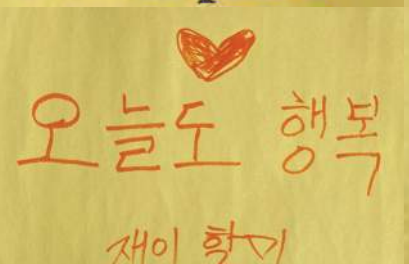 오늘도 행복
재이 학기